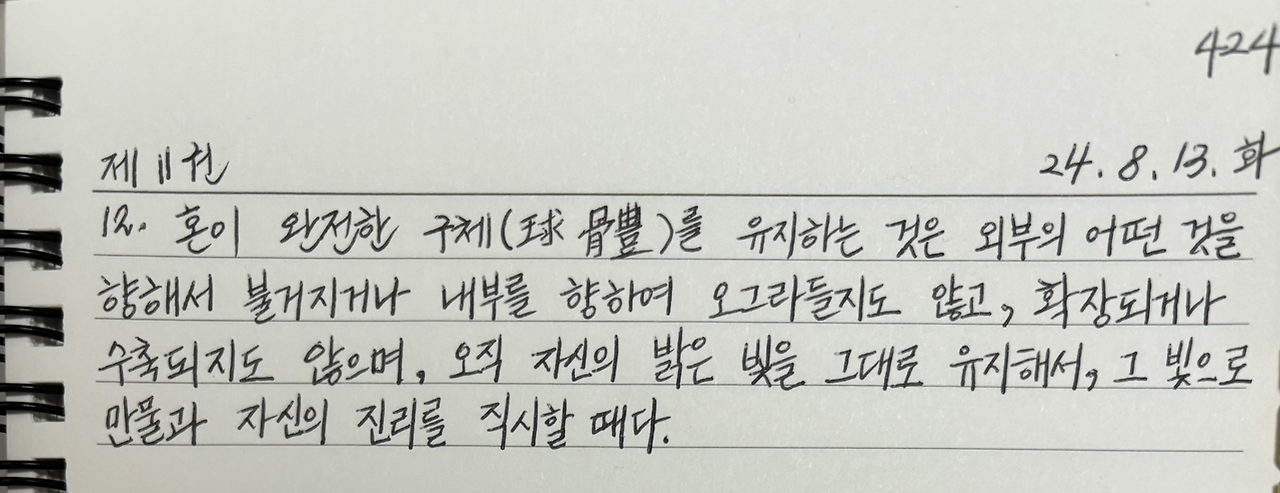 424
제 11권 24. 8. 13. 화
12. 혼이 완전한 구체(球 骨豊)를 유지하는 것은 외부의 어떤 것을
향해서 불거지거나 내부를 향하여 오그라들지도 않고, 확장되거나
수축되지도 않으며, 오직 자신의 밝은 빛을 그대로 유지해서, 그 빛으로
만물과 자신의 진리를 직시할 때다.